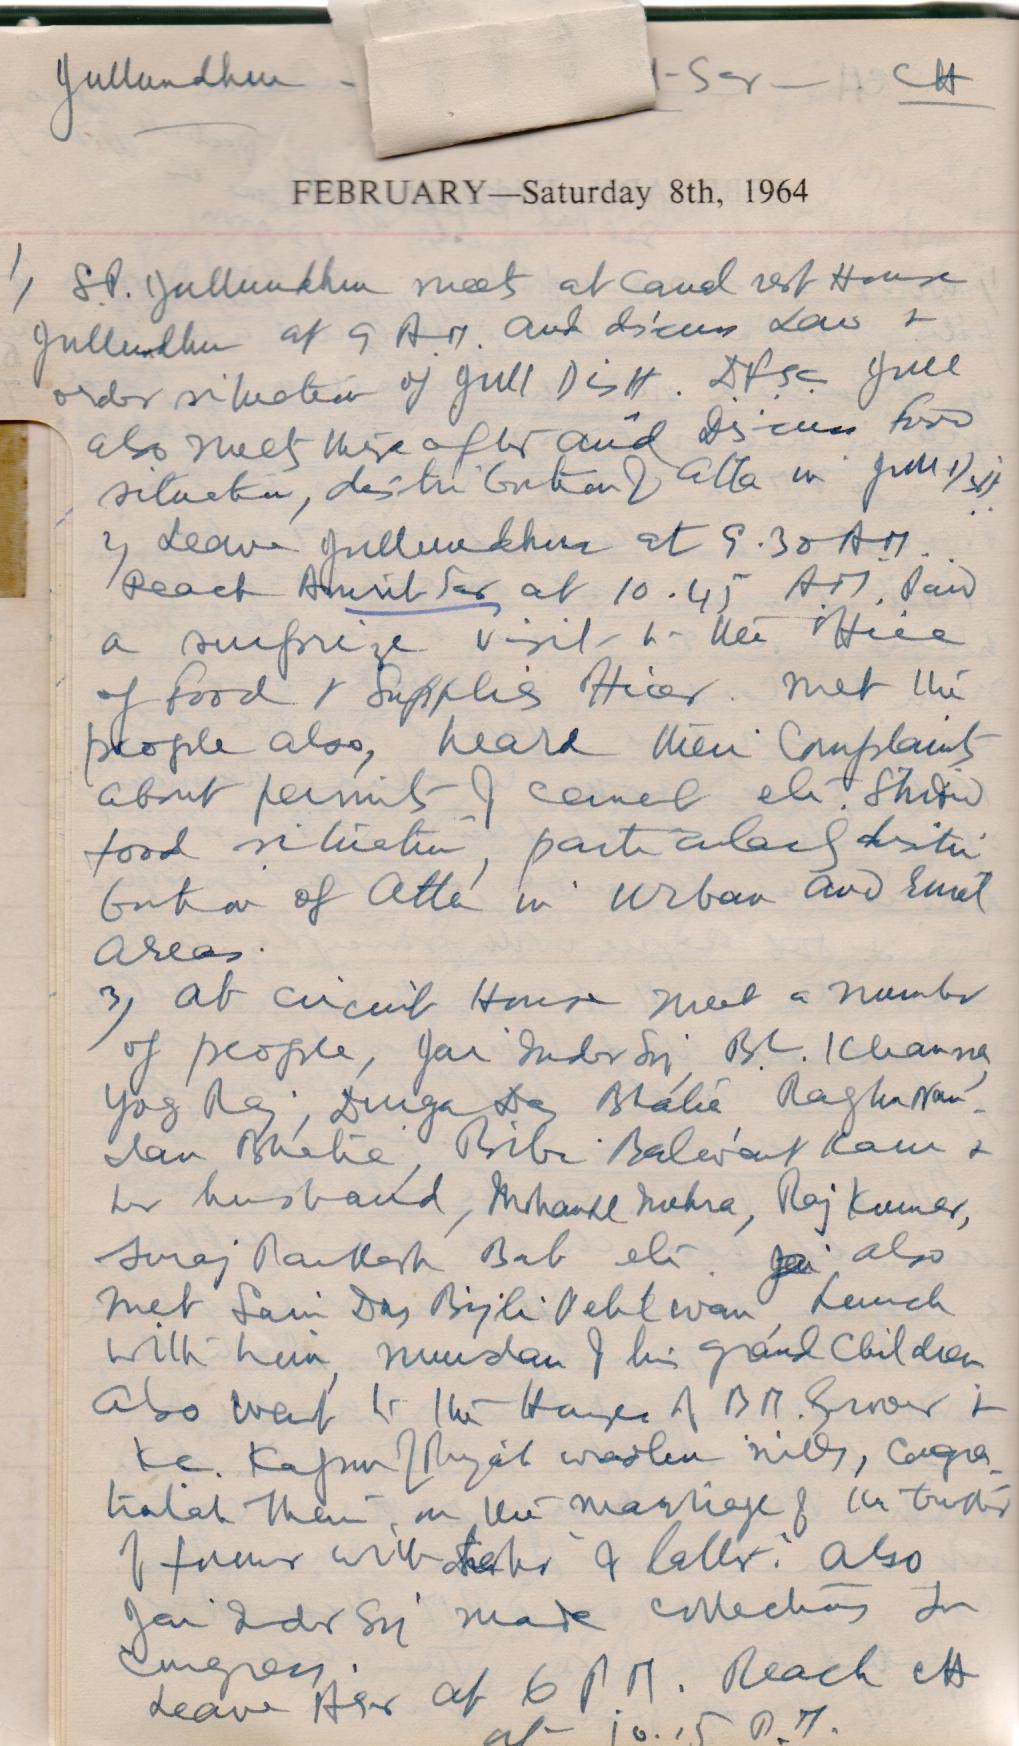 Jullundhur - -Sar - CH
FEBRUARY—Saturday 8th, 1964
1, S.P. Jullundhur meets at Canal rest House
Jullundhur at 9 A.M. and discuss Law &
order situation of Jull Distt. DFSC Jull
also meets thereafter and Discuss food
situation, distribution of Atta in Jull Distt
2, Leave Jullundhur at 9.30 A.M.
Reach Amritsar at 10.45 A.M. Paid
a surprize visit to the office
of Food & Supplies Officer. Met the
people also, heard their Complaints
about permits of cement etc. Studied
food situation, particularly distri
bution of Atta in Urban and Rural
areas.
3, At Circuit House meet a number
of people, Jai Inder Sing, B.L. Khanna,
Yog Raj, Durga Das Bhatia Raghunan-
dan Bhatia, Bibi Balwant Kaur &
her husband, Mohan Mehra, Raj Kumar,
Suraj Parkash Bab etc. Jai also
met Sain Das Bijli Pehlwan, Lunch
with him, mundan of his grand Children
Also went to the House of B.M. Grover &
K.C. Kapur of woolen mills, Congra-
tulate them on the marriage of the
of former with of latter. Also
Jai Inder Sing made collections for
Congress.
Leave ASR at 6 P.M. Reach CH
at 10.15 P.M.